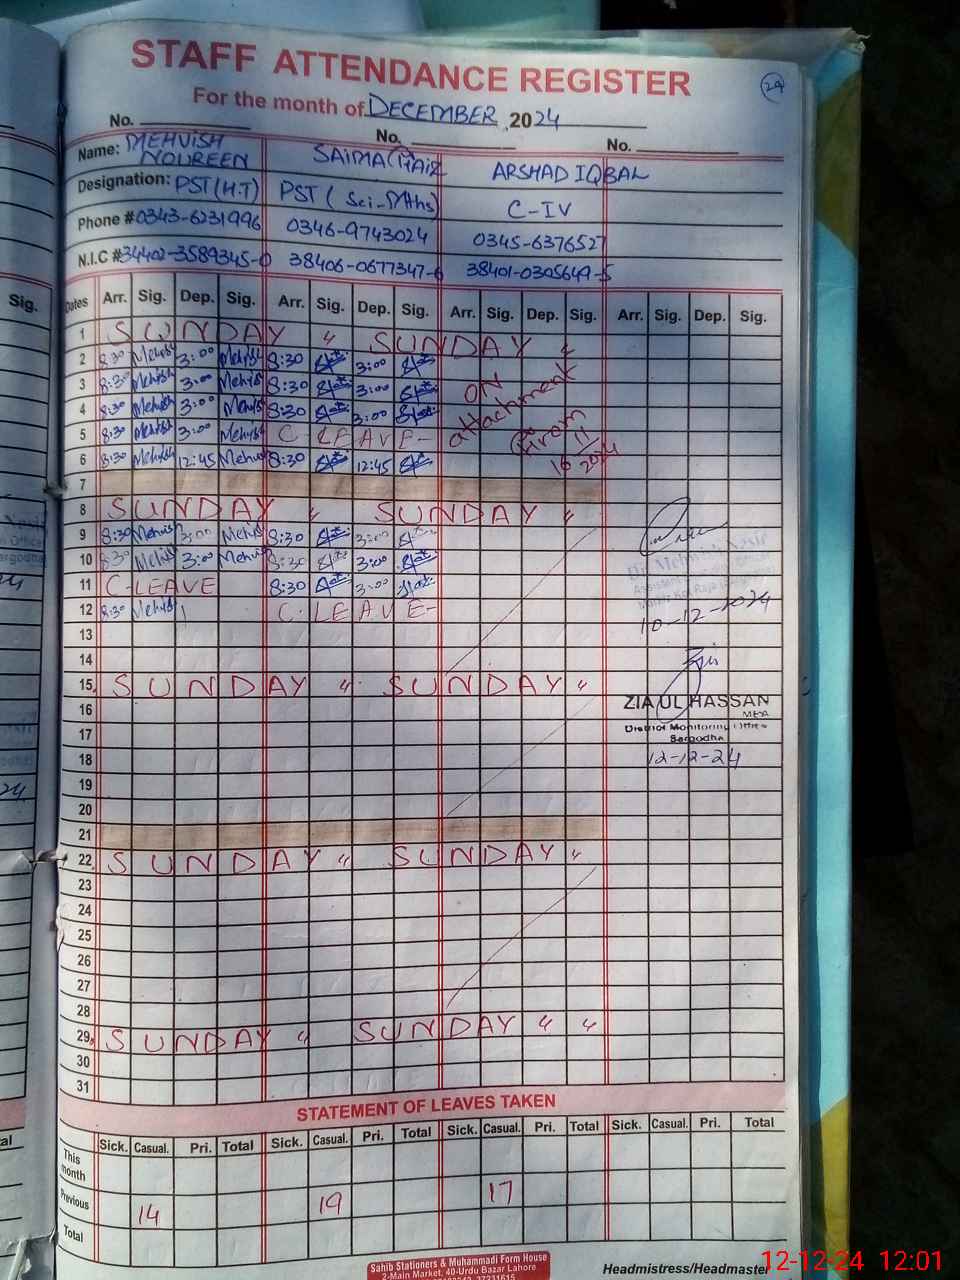 STAFF ATTENDANCE REGISTER
24
For the month of DECEMBER, 2024
No. No. No.
Name: MEHVISH NOUREEN SAIMA ARSHAD IQBAL
Designation: PST (H.T) PST (Sci-Mths) C-IV
Phone # 0343-6231996 0346-9743024 0345-6376527
N.I.C # 34402-3589345-0 38406-0677347-6 38401-0305649-5
Sig.
Dates Arr. Sig. Dep. Sig. Arr. Sig. Dep. Sig. Arr. Sig. Dep. Sig. Arr. Sig. Dep. Sig.
1 SUNDAY " SUNDAY "
2 8:30 Mehvish 3:00 Mehvish 8:30 3:00
3 8:30 Mehvish 3:00 Mehvish 8:30 3:00 ON
4 8:30 Mehvish 3:00 Mehvish 8:30 3:00 attachment
5 8:30 Mehvish 3:00 Mehvish C-LEAVE- From
6 8:30 Mehvish 12:45 Mehvish 8:30 12:45 16/11/2024
7
8 SUNDAY " SUNDAY "
9 8:30 Mehvish 3:00 Mehvish 8:30 3:00
10 8:30 Mehvish 3:00 Mehvish 8:30 3:00
11 C-LEAVE 8:30 3:00
12 8:30 Mehvish C-LEAVE-
10-12-2024
13
14
15 SUNDAY " SUNDAY "
ZIA UL HASSAN
16
MEA
17
District Monitoring Officer
Sargodha
18
12-12-24
19
20
21
22 SUNDAY " SUNDAY "
23
24
25
26
27
28
29 SUNDAY " SUNDAY " "
30
31
STATEMENT OF LEAVES TAKEN
Sick. Casual. Pri. Total Sick. Casual. Pri. Total Sick. Casual. Pri. Total Sick. Casual. Pri. Total
This month
Previous 14 19 17
Total
Sahib Stationers & Muhammadi Form House
2-Main Market, 40-Urdu Bazar Lahore
Headmistress/Headmaster
12-12-24 12:01